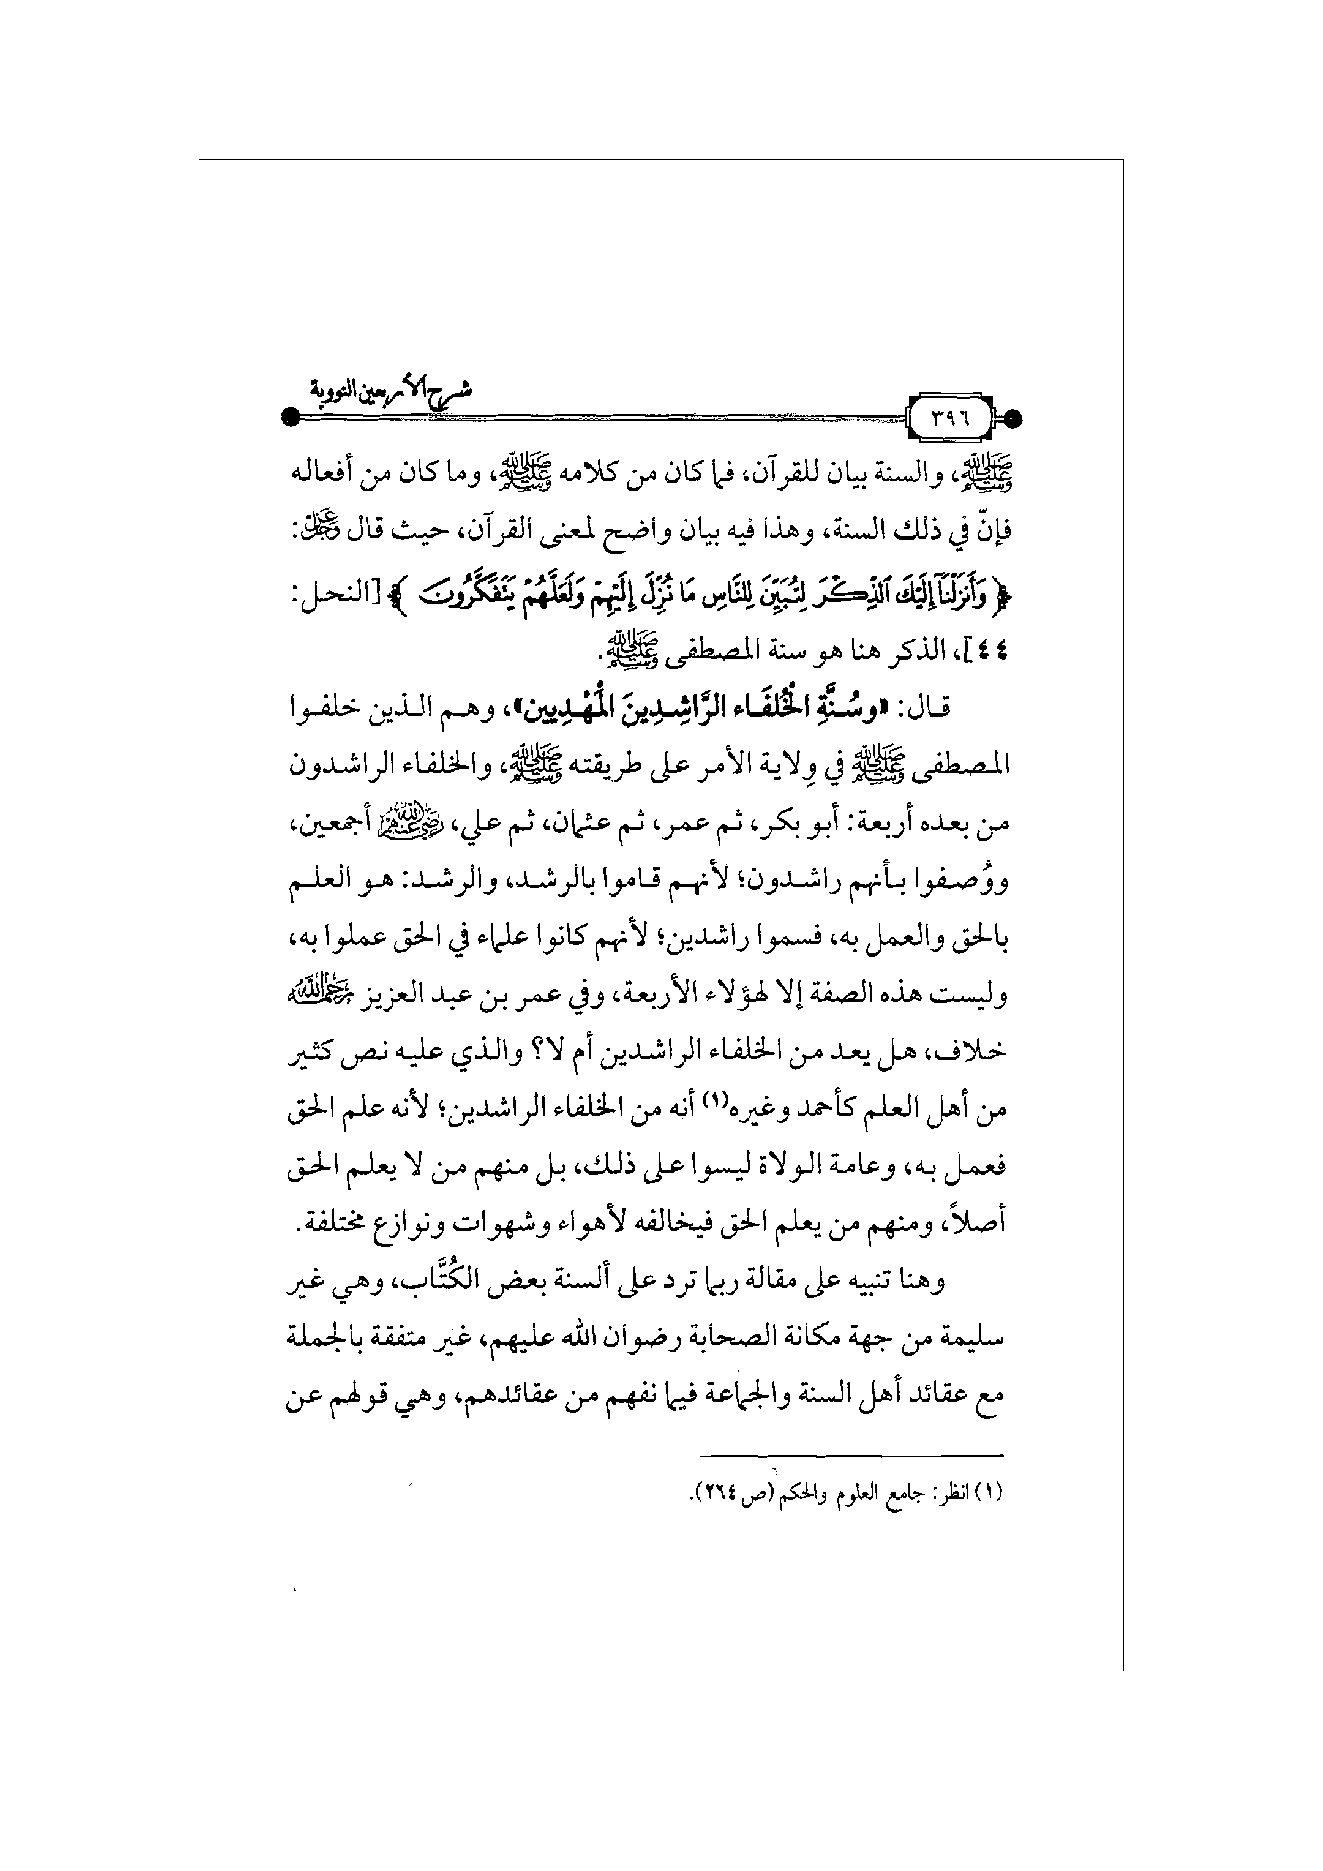 شرح الأربعين النووية
٣٩٦
ﷺ، والسنة بيان للقرآن، فما كان من كلامه ﷺ، وما كان من أفعاله
فإنّ في ذلك السنة، وهذا فيه بيان واضح لمعنى القرآن، حيث قال ﷻ:
﴿وَأَنزَلْنَآ إِلَيْكَ ٱلذِّكْرَ لِتُبَيِّنَ لِلنَّاسِ مَا نُزِّلَ إِلَيْهِمْ وَلَعَلَّهُمْ يَتَفَكَّرُونَ﴾ [النحل:
٤٤]، الذكر هنا هو سنة المصطفى ﷺ.
قال: «وسُنَّةِ الْخُلفَاء الرَّاشِدِينَ الْمُهْدِيين»، وهم الذين خلفوا
المصطفى ﷺ في وِلاية الأمر على طريقته ﷺ، والخلفاء الراشدون
من بعده أربعة: أبو بكر، ثم عمر، ثم عثمان، ثم علي، رضي الله عنهم أجمعين،
ووُصفوا بأنهم راشدون؛ لأنهم قاموا بالرشد، والرشد: هو العلم
بالحق والعمل به، فسموا راشدين؛ لأنهم كانوا علماء في الحق عملوا به،
وليست هذه الصفة إلا لهؤلاء الأربعة، وفي عمر بن عبد العزيز رحمه الله
خلاف، هل يعد من الخلفاء الراشدين أم لا؟ والذي عليه نص كثير
من أهل العلم كأحمد وغيره(١) أنه من الخلفاء الراشدين؛ لأنه علم الحق
فعمل به، وعامة الولاة ليسوا على ذلك، بل منهم من لا يعلم الحق
أصلاً، ومنهم من يعلم الحق فيخالفه لأهواء وشهوات ونوازع مختلفة.
وهنا تنبيه على مقالة ربما ترد على ألسنة بعض الكُتَّاب، وهي غير
سليمة من جهة مكانة الصحابة رضوان الله عليهم، غير متفقة بالجملة
مع عقائد أهل السنة والجماعة فيما نفهم من عقائدهم، وهي قولهم عن
(١) انظر: جامع العلوم والحكم (ص٢٦٤).